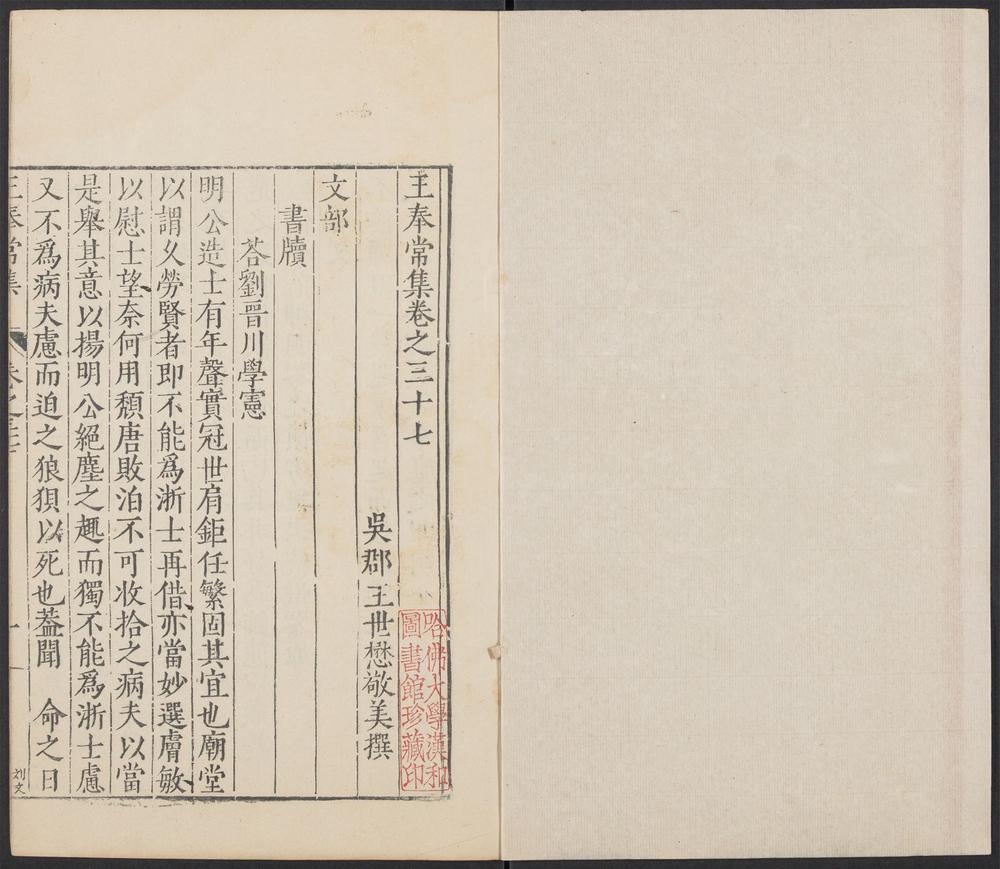 王奉常集卷之三十七
吳郡王世懋敬美撰
文部
書牘
荅劉晉川學憲
明公造士有年聲實冠世肩鉅任繁固其宜也廟堂
以謂久勞賢者即不能爲浙士再借亦當妙選膚敏
以慰士望奈何用頹唐敗泊不可收拾之病夫以當
是舉其意以揚明公絕塵之趣而獨不能爲浙士慮
又不爲病夫慮而迫之狼狽以死也葢聞 命之日
王奉常集 卷之三十七 一
刘文
哈佛大學漢和
圖書館珍藏印